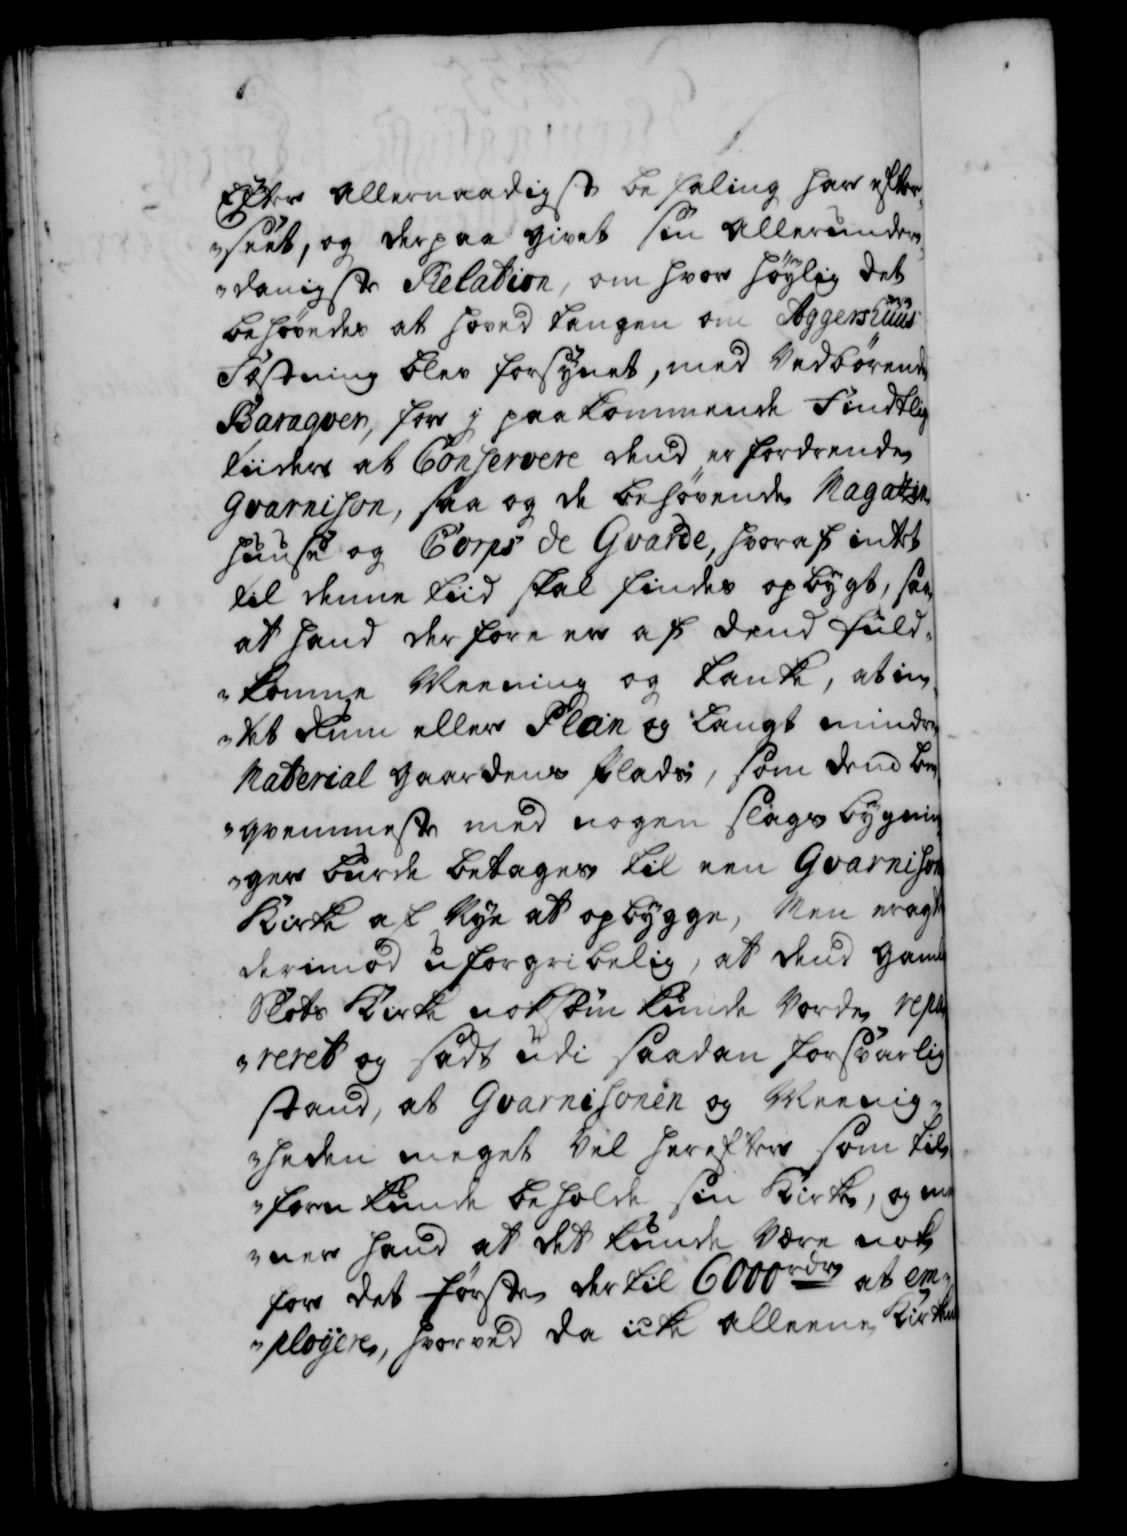 Efter Allernaadigst befaling har efter
-seet, og derpaa givet sin Allerunder
-danigste Relation, om hvor høylig det
behøvedes at hoved tangen om Aggershuus
Fæstning blev forsynet, med Vedbørende
Baraqver, for j paakommende Findtlig
tiider at Conservere dend erfordrende
Gvarnison, saa og de behøvende Magazin
huuse og Corps de Gvarde, hvoraf intet
til denne tiid skal findes opbygt, saa
at hand derfore er af dend fuld-
-komne Meening og tanke, at in-
-tet Rum eller Plain og langt mindre
Material gaardens Plads, som dend be
-qvemmeste med nogen slags bygnin
-ger burde betages til een Gvarnison
Kirke af Nye at opbygge, Men eragt
derimod uforgribelig, at dend gamle
Slots Kirke noksom kunde Vorde repa
-reret og sadt udi saadan forsvarlig
stand, at Gvarnisonen og Meenig-
-heden meget Vel herefter som til
-forn kunde beholde sin Kirke, og me
-ner hand at det kunde Være nok
for det første dertil 6000 rdr at em-
-ployere, hvorved da icke alleene Kirken